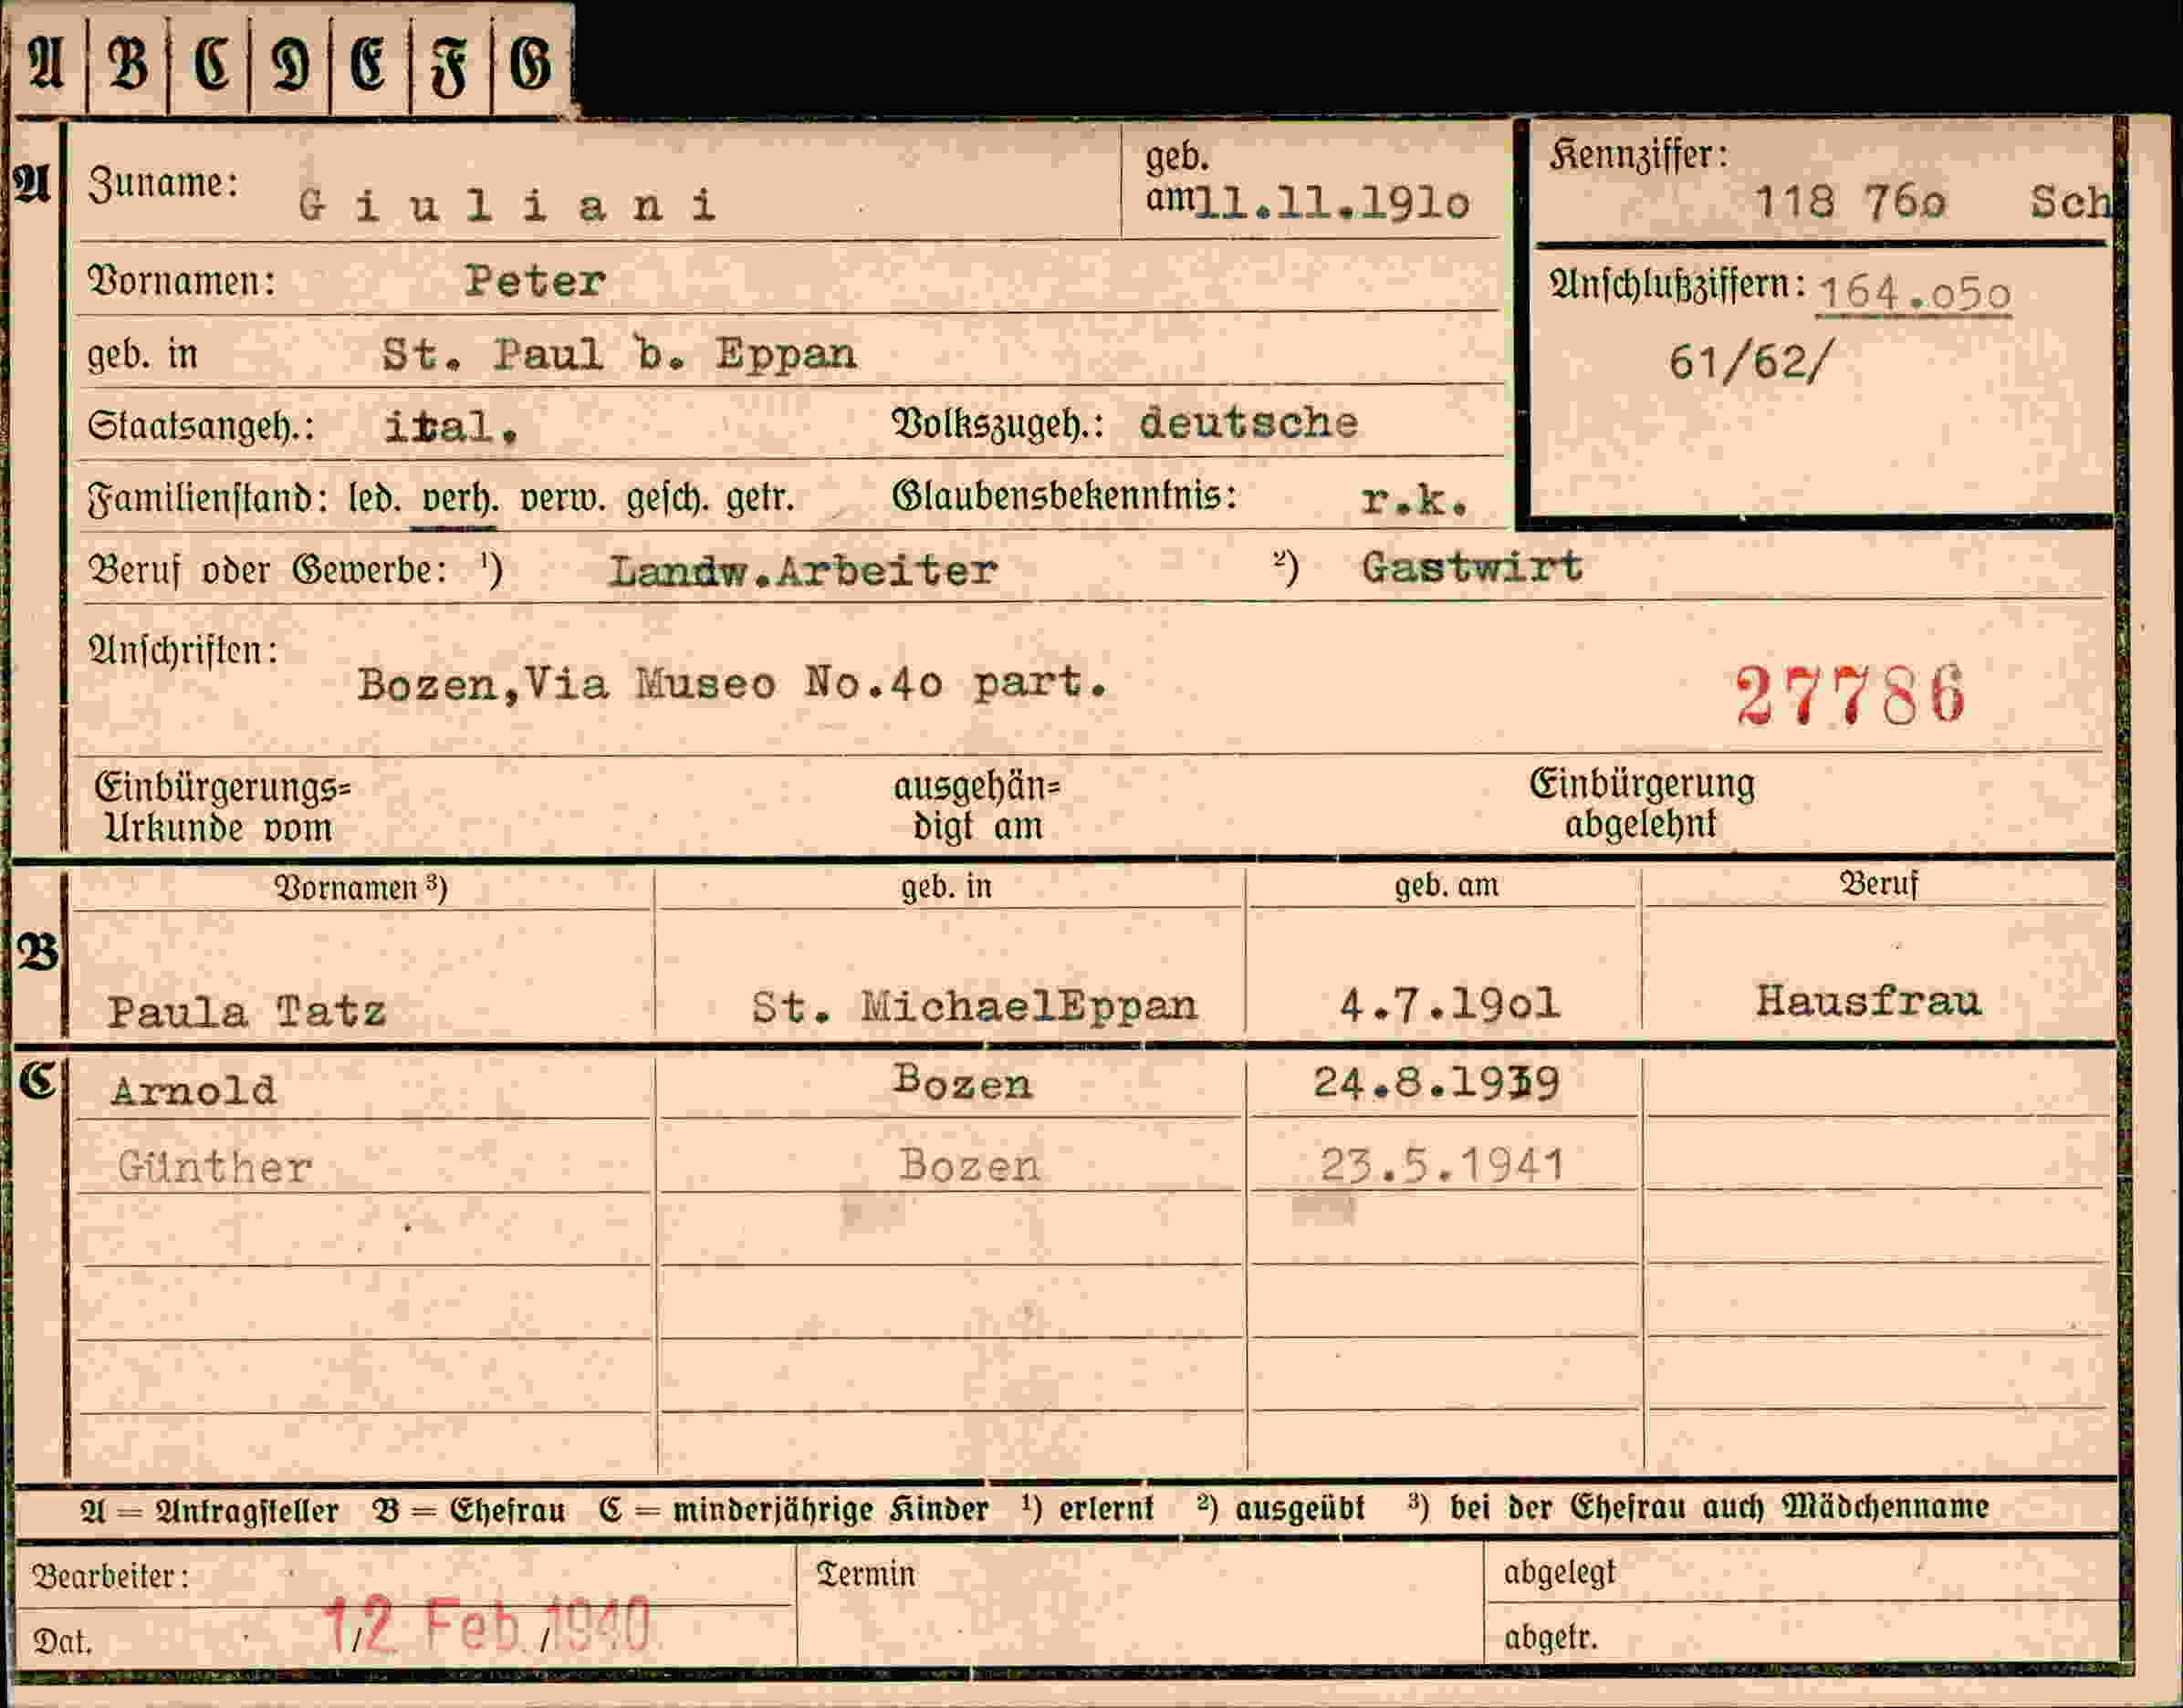 A B C D E F G
A Zuname: Giuliani geb. am 11.11.191o
Kennziffer: 118 76o Sch
Vornamen: Peter
Anschlußziffern: 164.o5o
61/62/
geb. in St. Paul b. Eppan
Staatsangeh.: ital. Volkszugeh.: deutsche
Familienstand: led. verh. verw. gesch. getr. Glaubensbekenntnis: r.k.
Beruf oder Gewerbe: ¹) Landw.Arbeiter ²) Gastwirt
Anschriften: Bozen,Via Museo No.4o part.
27786
Einbürgerungs= ausgehän= Einbürgerung
Urkunde vom digt am abgelehnt
Vornamen ³) geb. in geb. am Beruf
B Paula Tatz St. MichaelEppan 4.7.19o1 Hausfrau
C Arnold Bozen 24.8.1939
Günther Bozen 23.5.1941
A = Antragsteller B = Ehefrau C = minderjährige Kinder ¹) erlernt ²) ausgeübt ³) bei der Ehefrau auch Mädchenname
Bearbeiter: Termin abgelegt
Dat. 12 Feb. 1940 abgetr.